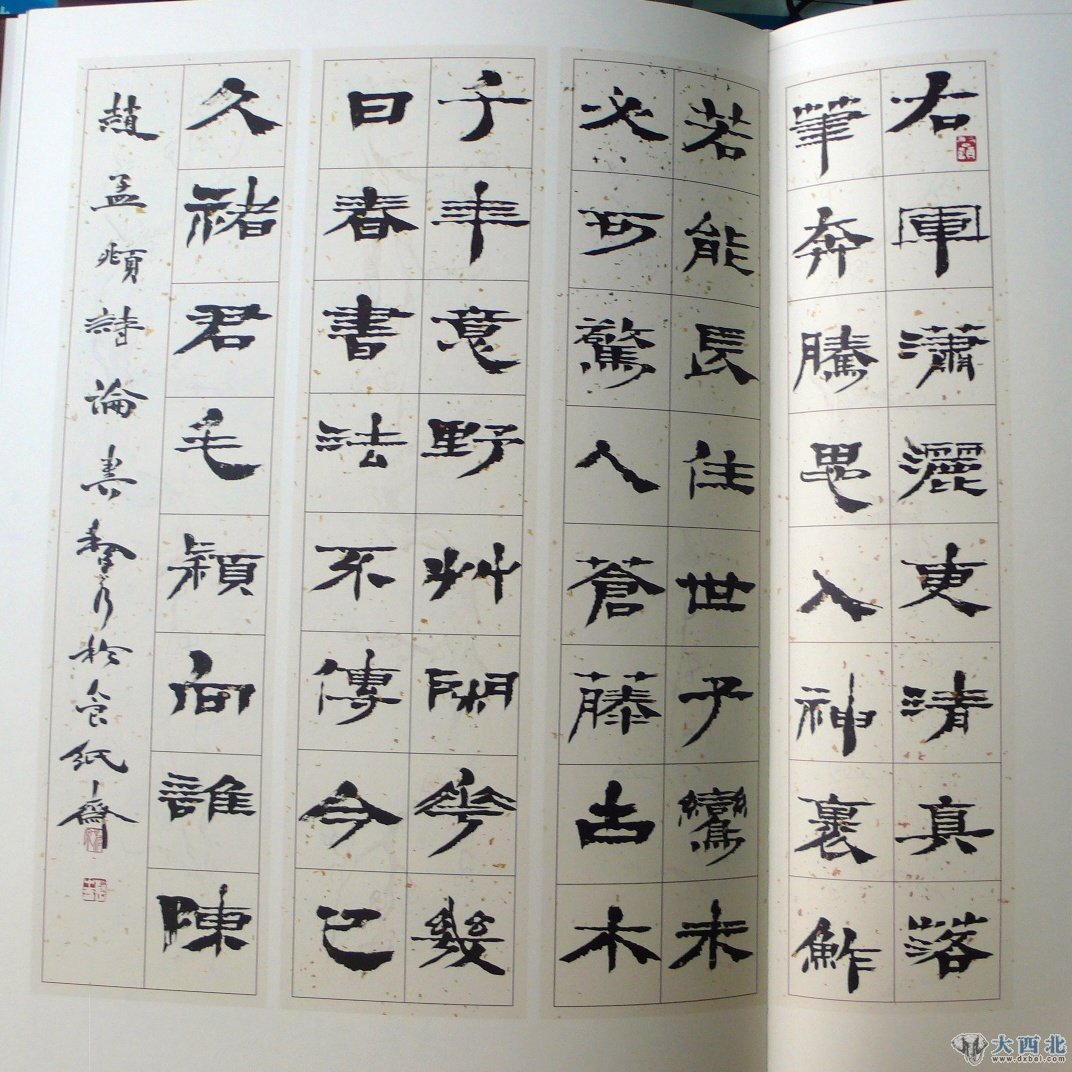 右軍瀟灑更清真落
筆奔騰思入神裹鮓
若能長住世子鸞未
必可驚人蒼藤古木
千年意野艸閑華幾
日春書法不傳今已
久褚君毛穎向誰陳
趙孟頫詩論書於食紙齋
大西北
www.dxbei.com